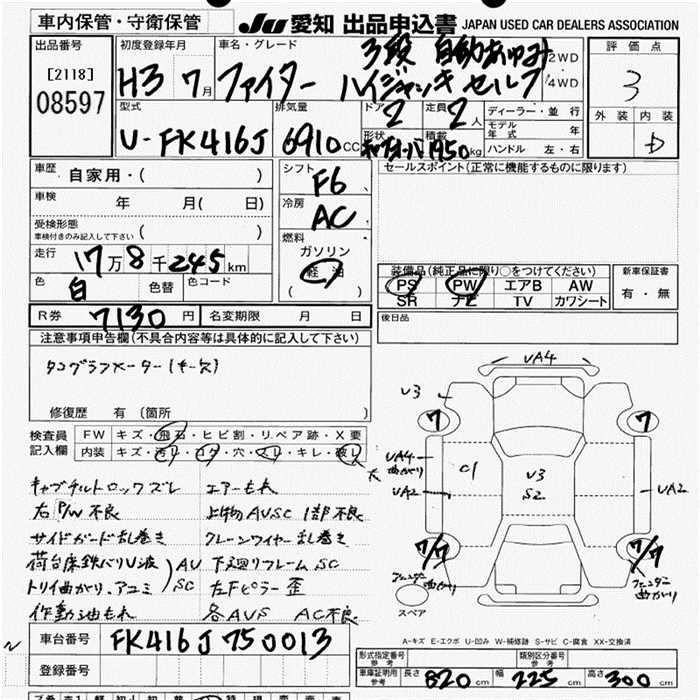 車内保管・守衛保管
JU 愛知 出品申込書 JAPAN USED CAR DEALERS ASSOCIATION
出品番号
[2118]
08597
初度登録年月
H3 7月
車名・グレード
ファイター
3段 自動あゆみ
ハイジャッキ セルフ
2WD
4WD
評価点
3
外装 内装
D
型式
U-FK416J
排気量
6910 CC
ドア
2
定員
2人
形状
積載
1950 kg
ディーラー・並行
モデル年式 年
ハンドル 左・右
車歴 自家用・( )
車検 年 月( 日)
受検形態
車検付きのみ記入して下さい ( )
走行 17万8千245km
色 白 色替 色コード
R券 7130円 名変期限 月 日
シフト F6
冷房 AC
燃料
ガソリン
軽油
( )
セールスポイント(正常に機能するものに限ります)
装備品(純正品に限り○をつけてください)
PS PW エアB AW
SR ナビ TV カワシート
新車保証書
有・無
後日品
注意事項申告欄(不具合内容等は具体的に記入して下さい)
タコグラフメーター(キー欠)
修復歴 有(箇所 )
検査員記入欄
FW キズ・飛石・ヒビ割・リペア跡・X要
内装 キズ・汚レ・コゲ・穴・スレ・キレ・破レ 大
キャブチルトロックズレ エアーもれ
右P/W不良 上物AVSC 1部不良
サイドガード乱巻き クレーンワイヤー乱巻き
荷台床鉄バリU波 AU 下廻リフレームSC
トリイ曲がり、アユミ SC 左Fピラー歪
作動油もれ 各AVS AC不良
UA4
U3
7 7
UA4
曲がり
C1
U3
S2
UA2
UA2
7/7 7/7
フェンダー曲がり
フェンダー曲がり
スペア
A-キズ E-エクボ U-凹み W-補修跡 S-サビ C-腐食 XX-交換済
車台番号 FK416J 750013
登録番号
形式指定番号 参考
類別区分番号 参考
車庫証明用 参考 長さ 820cm 幅 225cm 高さ 300cm